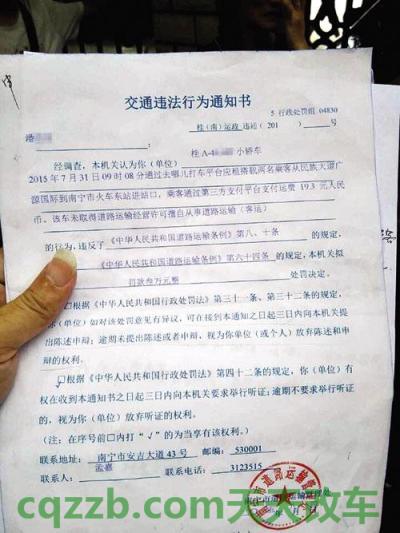 交通违法行为通知书
5 行政处罚组 04830
桂（南）运政 违通（ 201 ）
桂 A·4 小轿车
经调查，本机关认为你（单位）
2015 年 7 月 31 日 09 时 08 分通过去哪儿打车平台应租搭载两名乘客从民族大道广
源国际到南宁市火车东站进站口，乘客通过第三方支付平台支付运费 19.3 元人民
币。该车未取得道路运输经营许可擅自从事道路运输（客运）
的行为，违反了《中华人民共和国道路运输条例》第八、十条 的规定，
《中华人民共和国道路运输条例》第六十四条 的规定，本机关拟
罚款叁万元整 处罚决定。
□根据《中华人民共和国行政处罚法》第三十一条、第三十二条的规定，
你（单位）如对该处罚意见有异议，可在接到本通知之日起三日内向本机关提
出陈述申辩；逾期未提出陈述或者申辩，视为你单位（或个人）放弃陈述和申
辩的权利。
□根据《中华人民共和国行政处罚法》第四十二条的规定，你（单位）有
权在收到本通知书之日起三日内向本机关要求举行听证；逾期不要求举行听证
的，视为你（单位）放弃听证的权利。
（注：在序号前□内打“√”的为当享有该权利。）
联系地址： 南宁市安吉大道 43 号 邮编： 530001
联系人： 孟嘉 联系电话： 3123515
cqzzb.com天天救车